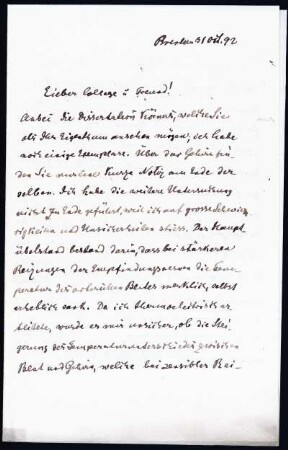 Breslau 31 Oct. 92
Lieber College u Freund!
Anbei die Dissertation Körner's, welche Sie
als Ihr Eigenthum ansehen mögen, ich habe
noch einige Exemplare. Über das Gehirn fin-
den Sie nur eine kurze Notiz am Ende der
selben. Ich habe die weitere Untersuchung
nicht zu Ende geführt, weil ich auf grosse Schwie-
rigkeiten und Unsicherheiten stiess. Der Haupt
übelstand bestand darin, dass bei stärkeren
Reizungen der Empfindungsnerven die Tem-
peratur des arteriellen Blutes merklich, selbst
erheblich sank. Da ich thermoelektrisch ar-
beitete, wurde es mir unsicher, ob die Stei-
gerung des Temperaturunterschiedes zwischen
Blut und Gehirn, welche bei sensibler Rei-